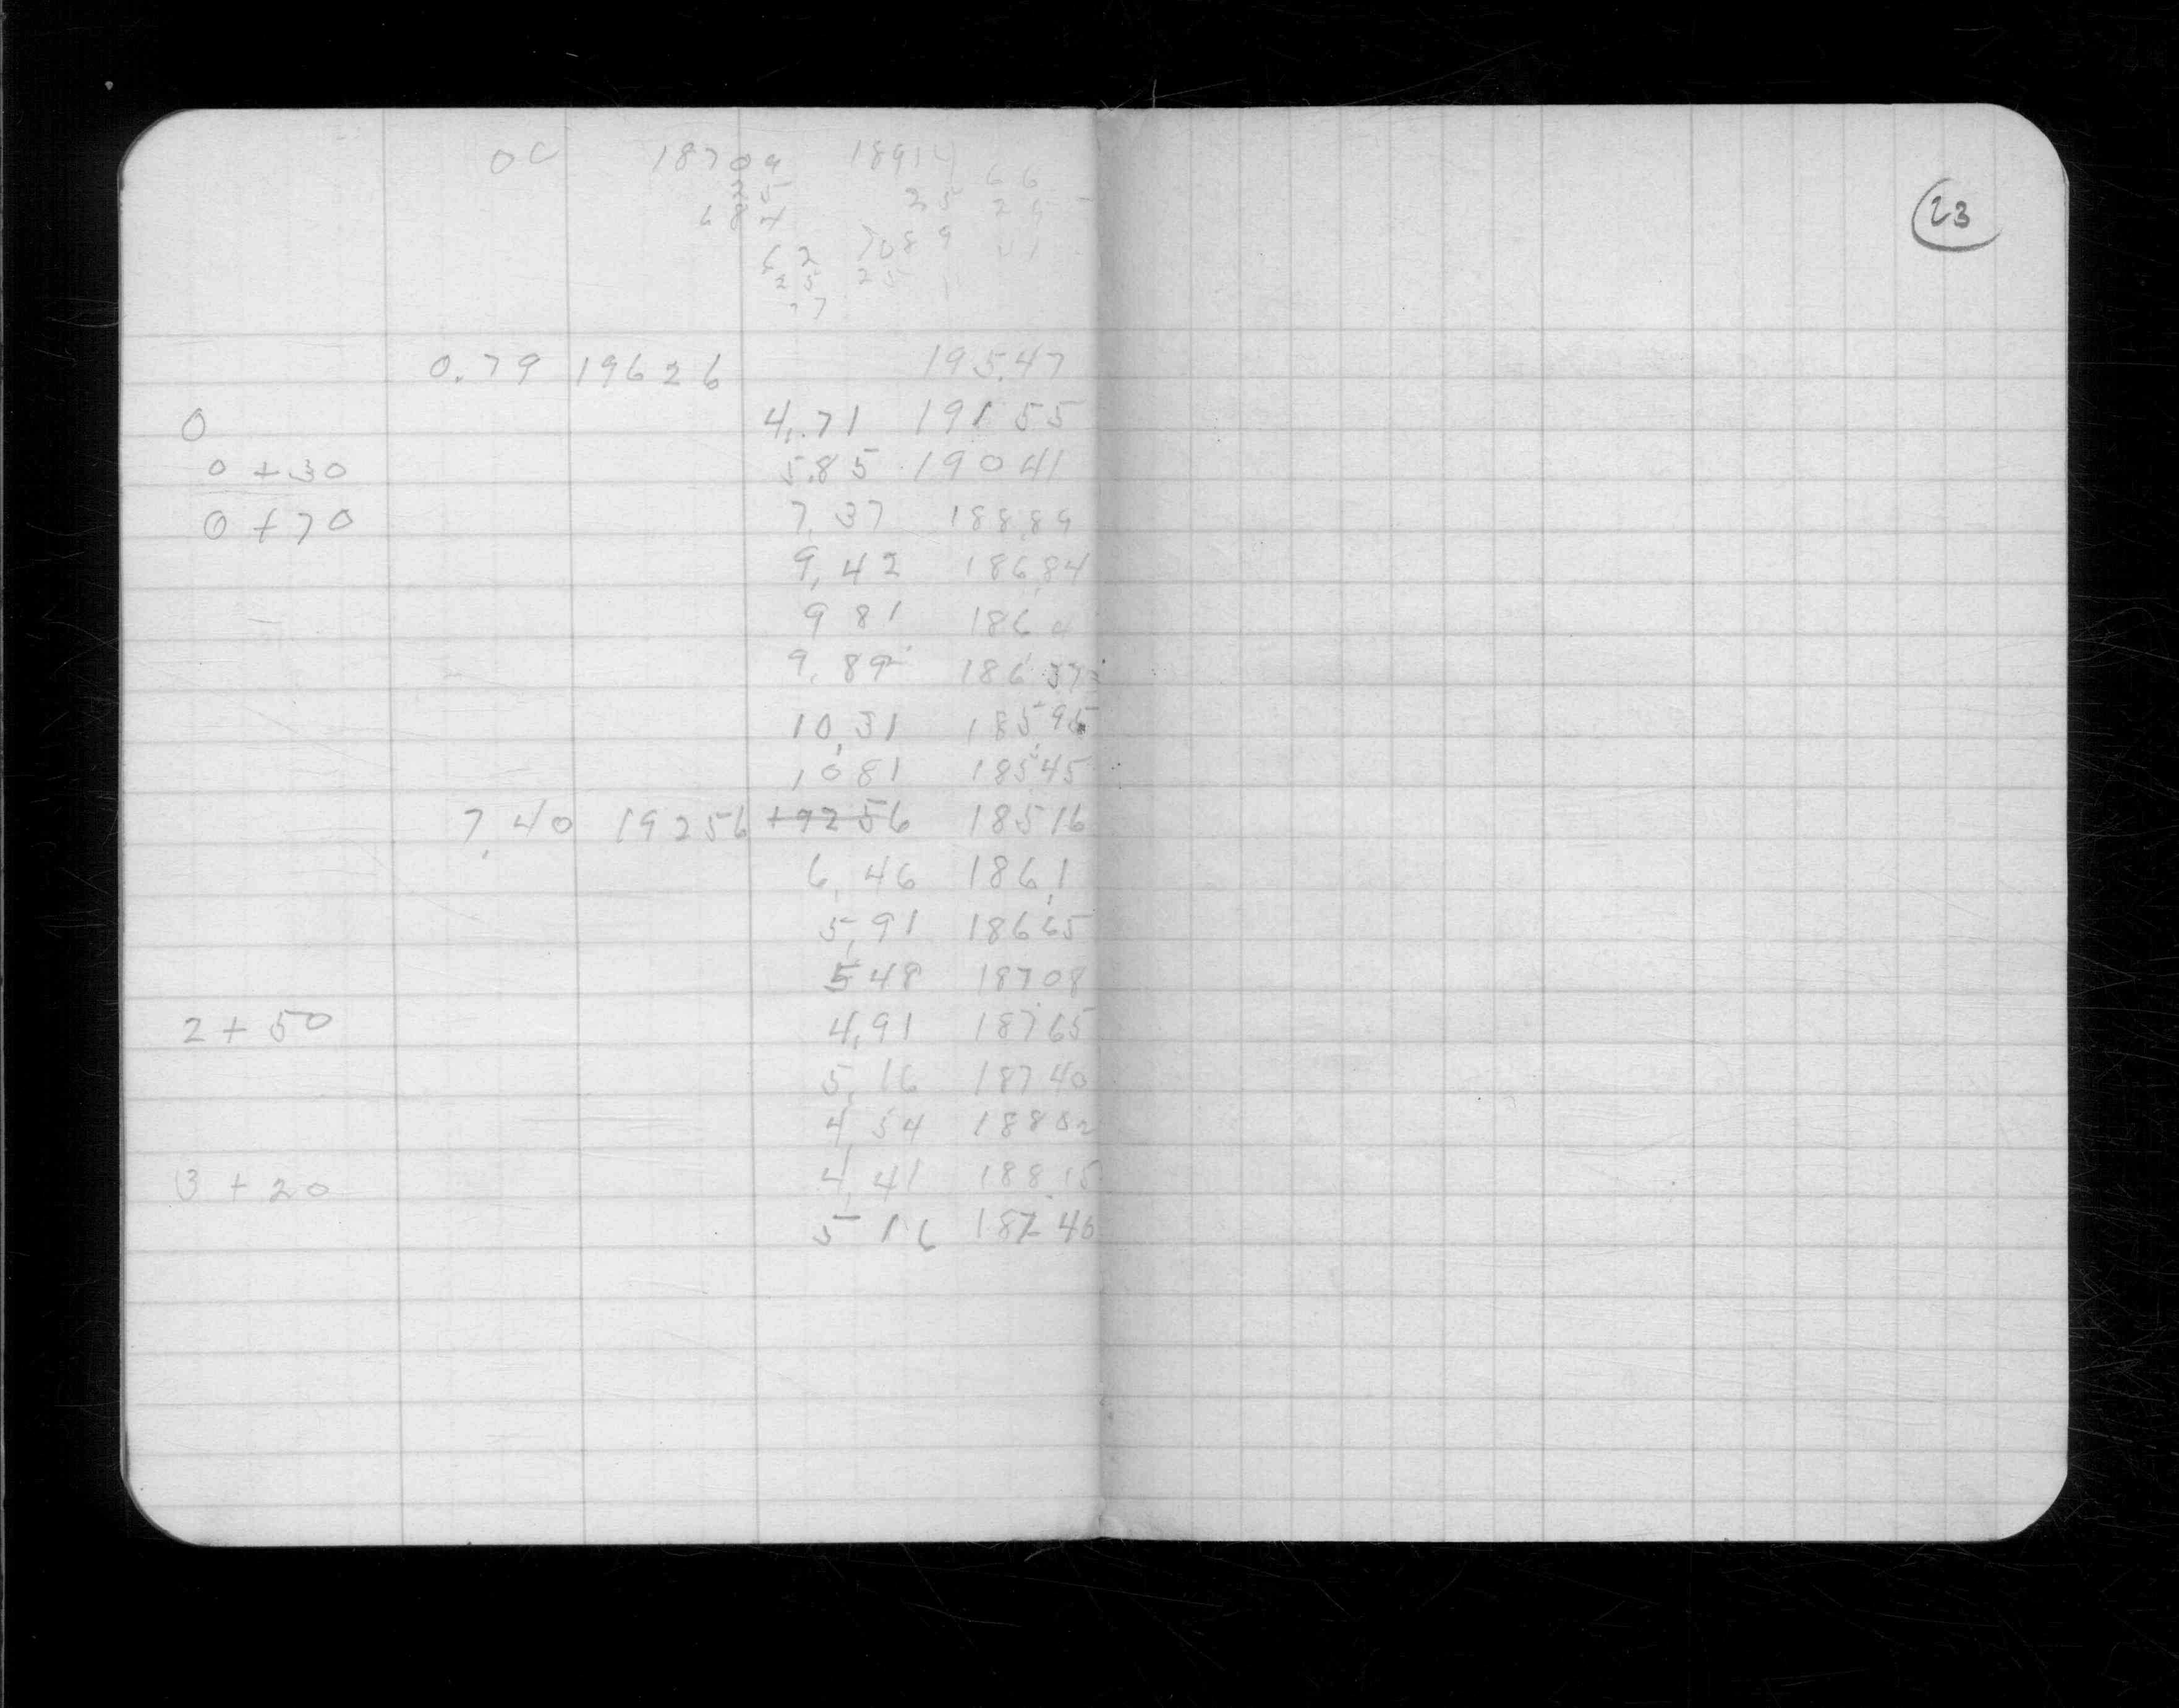 23
18709 18914 66
25 25 29
684 7089
62
25 25
77
0.79 19626 195.47
0 4.71 191 55
0 + 30 5.85 190 41
0 + 70 7.37 188.89
9.42 186.84
9 81 186
9.89 186 37
10.31 185.95
10 81 185 45
7.40 19256 +9256 185 16
6.46 186.1
5.91 186 65
5 48 187 08
2 + 50 4.91 187 65
5.16 187 40
4.54 188 02
3 + 20 4.41 188 15
5 16 187 40